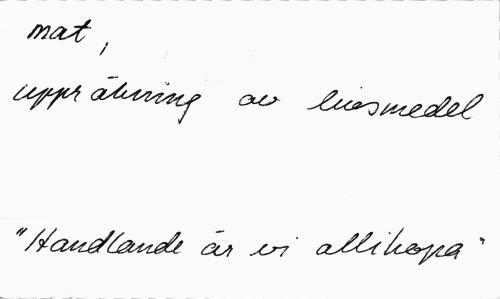 mat,
uppräkning av livsmedel
"Handlande är vi allihopa"